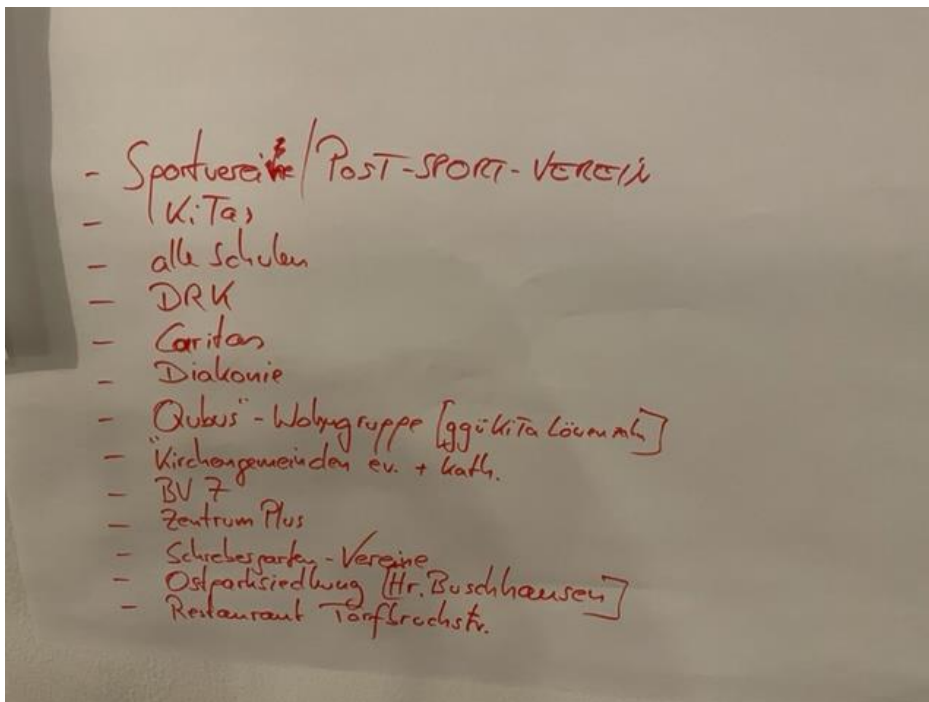 - Sportvereine / POST-SPORT-VEREIN
- KiTas
- alle Schulen
- DRK
- Caritas
- Diakonie
- "Qubus"-Wohngruppe [ggü KiTa
- Kirchengemeinden ev. + kath.
- BV 7
- Zentrum Plus
- Schrebergarten-Vereine
- Ostparksiedlung [Hr. Buschhausen]
- Restaurant Torfbruchstr.